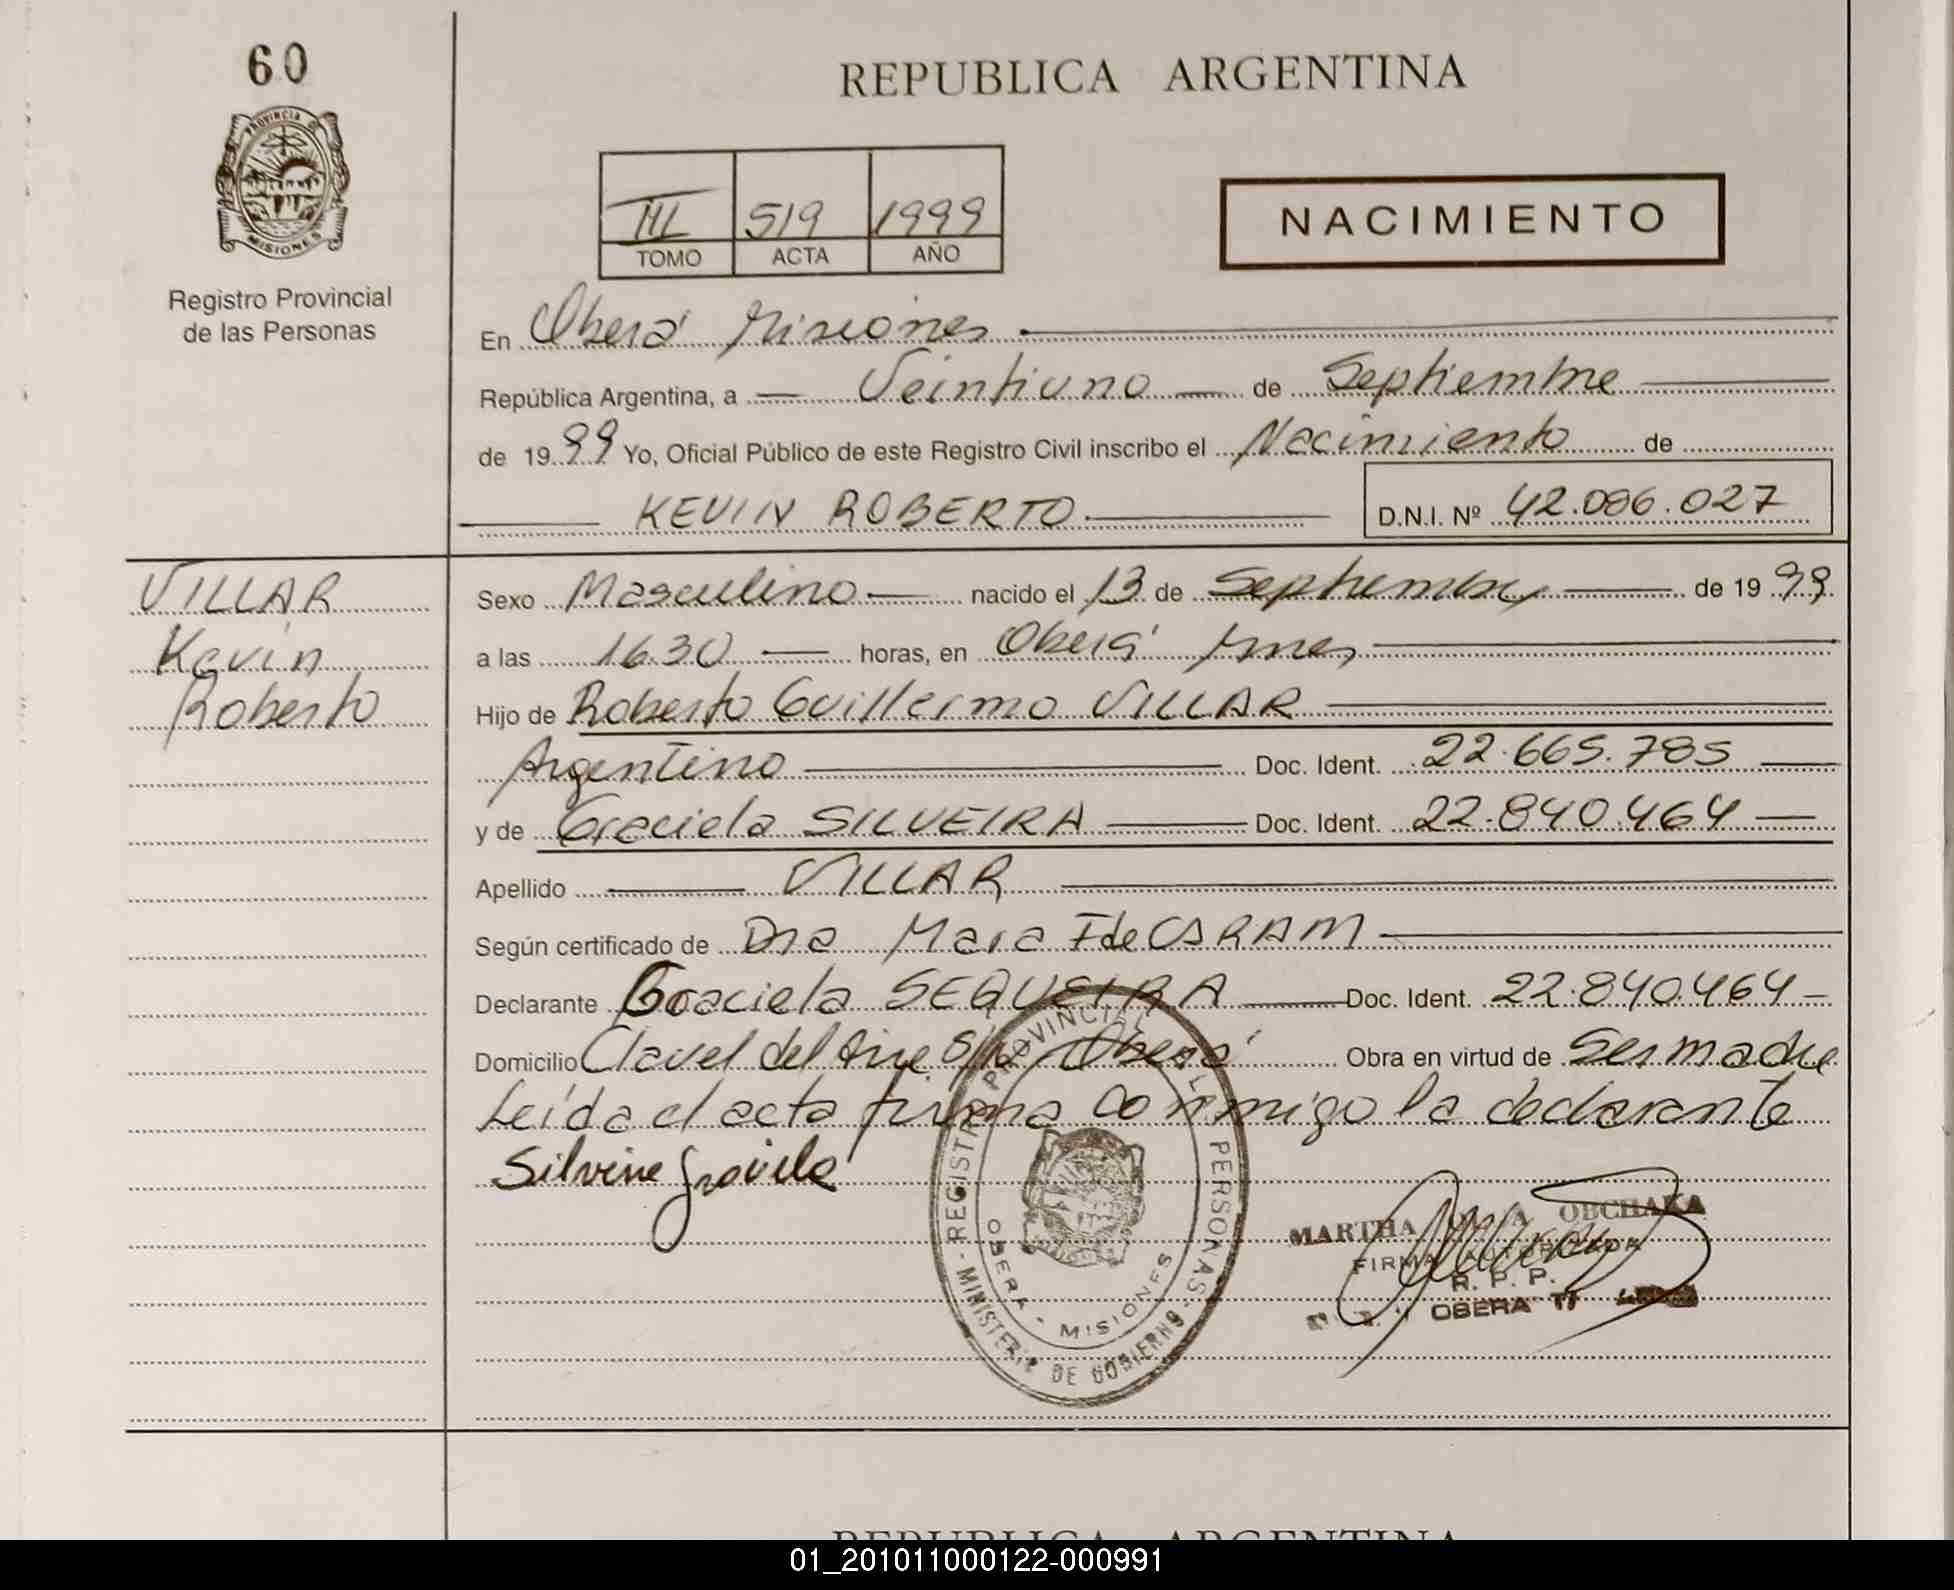 60
REPUBLICA ARGENTINA
III 519 1999
TOMO ACTA AÑO
NACIMIENTO
PROVINCIA DE
MISIONES
Registro Provincial
de las Personas
En Oberá Misiones
República Argentina, a Veintiuno de Septiembre
de 1999 Yo, Oficial Público de este Registro Civil inscribo el Nacimiento de
KEVIN ROBERTO D.N.I. Nº 42.086.027
VILLAR
Kevin
Roberto
Sexo Masculino nacido el 13 de Septiembre de 1999.
a las 16.30 horas, en Oberá Mnes
Hijo de Roberto Guillermo VILLAR
Argentino Doc. Ident. 22.665.785
y de Graciela SILVEIRA Doc. Ident. 22.840.464
Apellido VILLAR
Según certificado de Dra Mara F de CSRAM
Declarante Graciela SEQUEIRA Doc. Ident. 22.840.464
Domicilio Clavel del Aire S/n Oberá Obra en virtud de Ser madre
Leída el acta firma conmigo la declarante
Silveira Graciela
REGISTRO PROVINCIAL DE LAS PERSONAS - MINISTERIO DE GOBIERNO -
OBERA - MISIONES
MARTHA OBCHAKA
FIRMA AUTORIZADA
R. P. P.
OBERA
REPUBLICA ARGENTINA
01_201011000122-000991